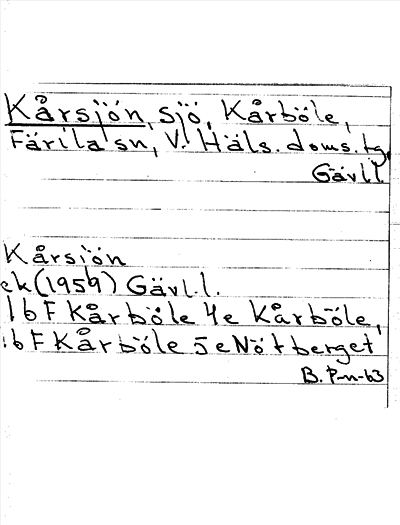 Kårsjön, sjö, Kårböle,
Färila sn, V. Häls. doms. tg,
Gävl.l.
Kårsjön
ek (1959) Gävl.l.
16 F Kårböle 4e Kårböle,
16 F Kårböle 5e Nötberget
B. P-n-63